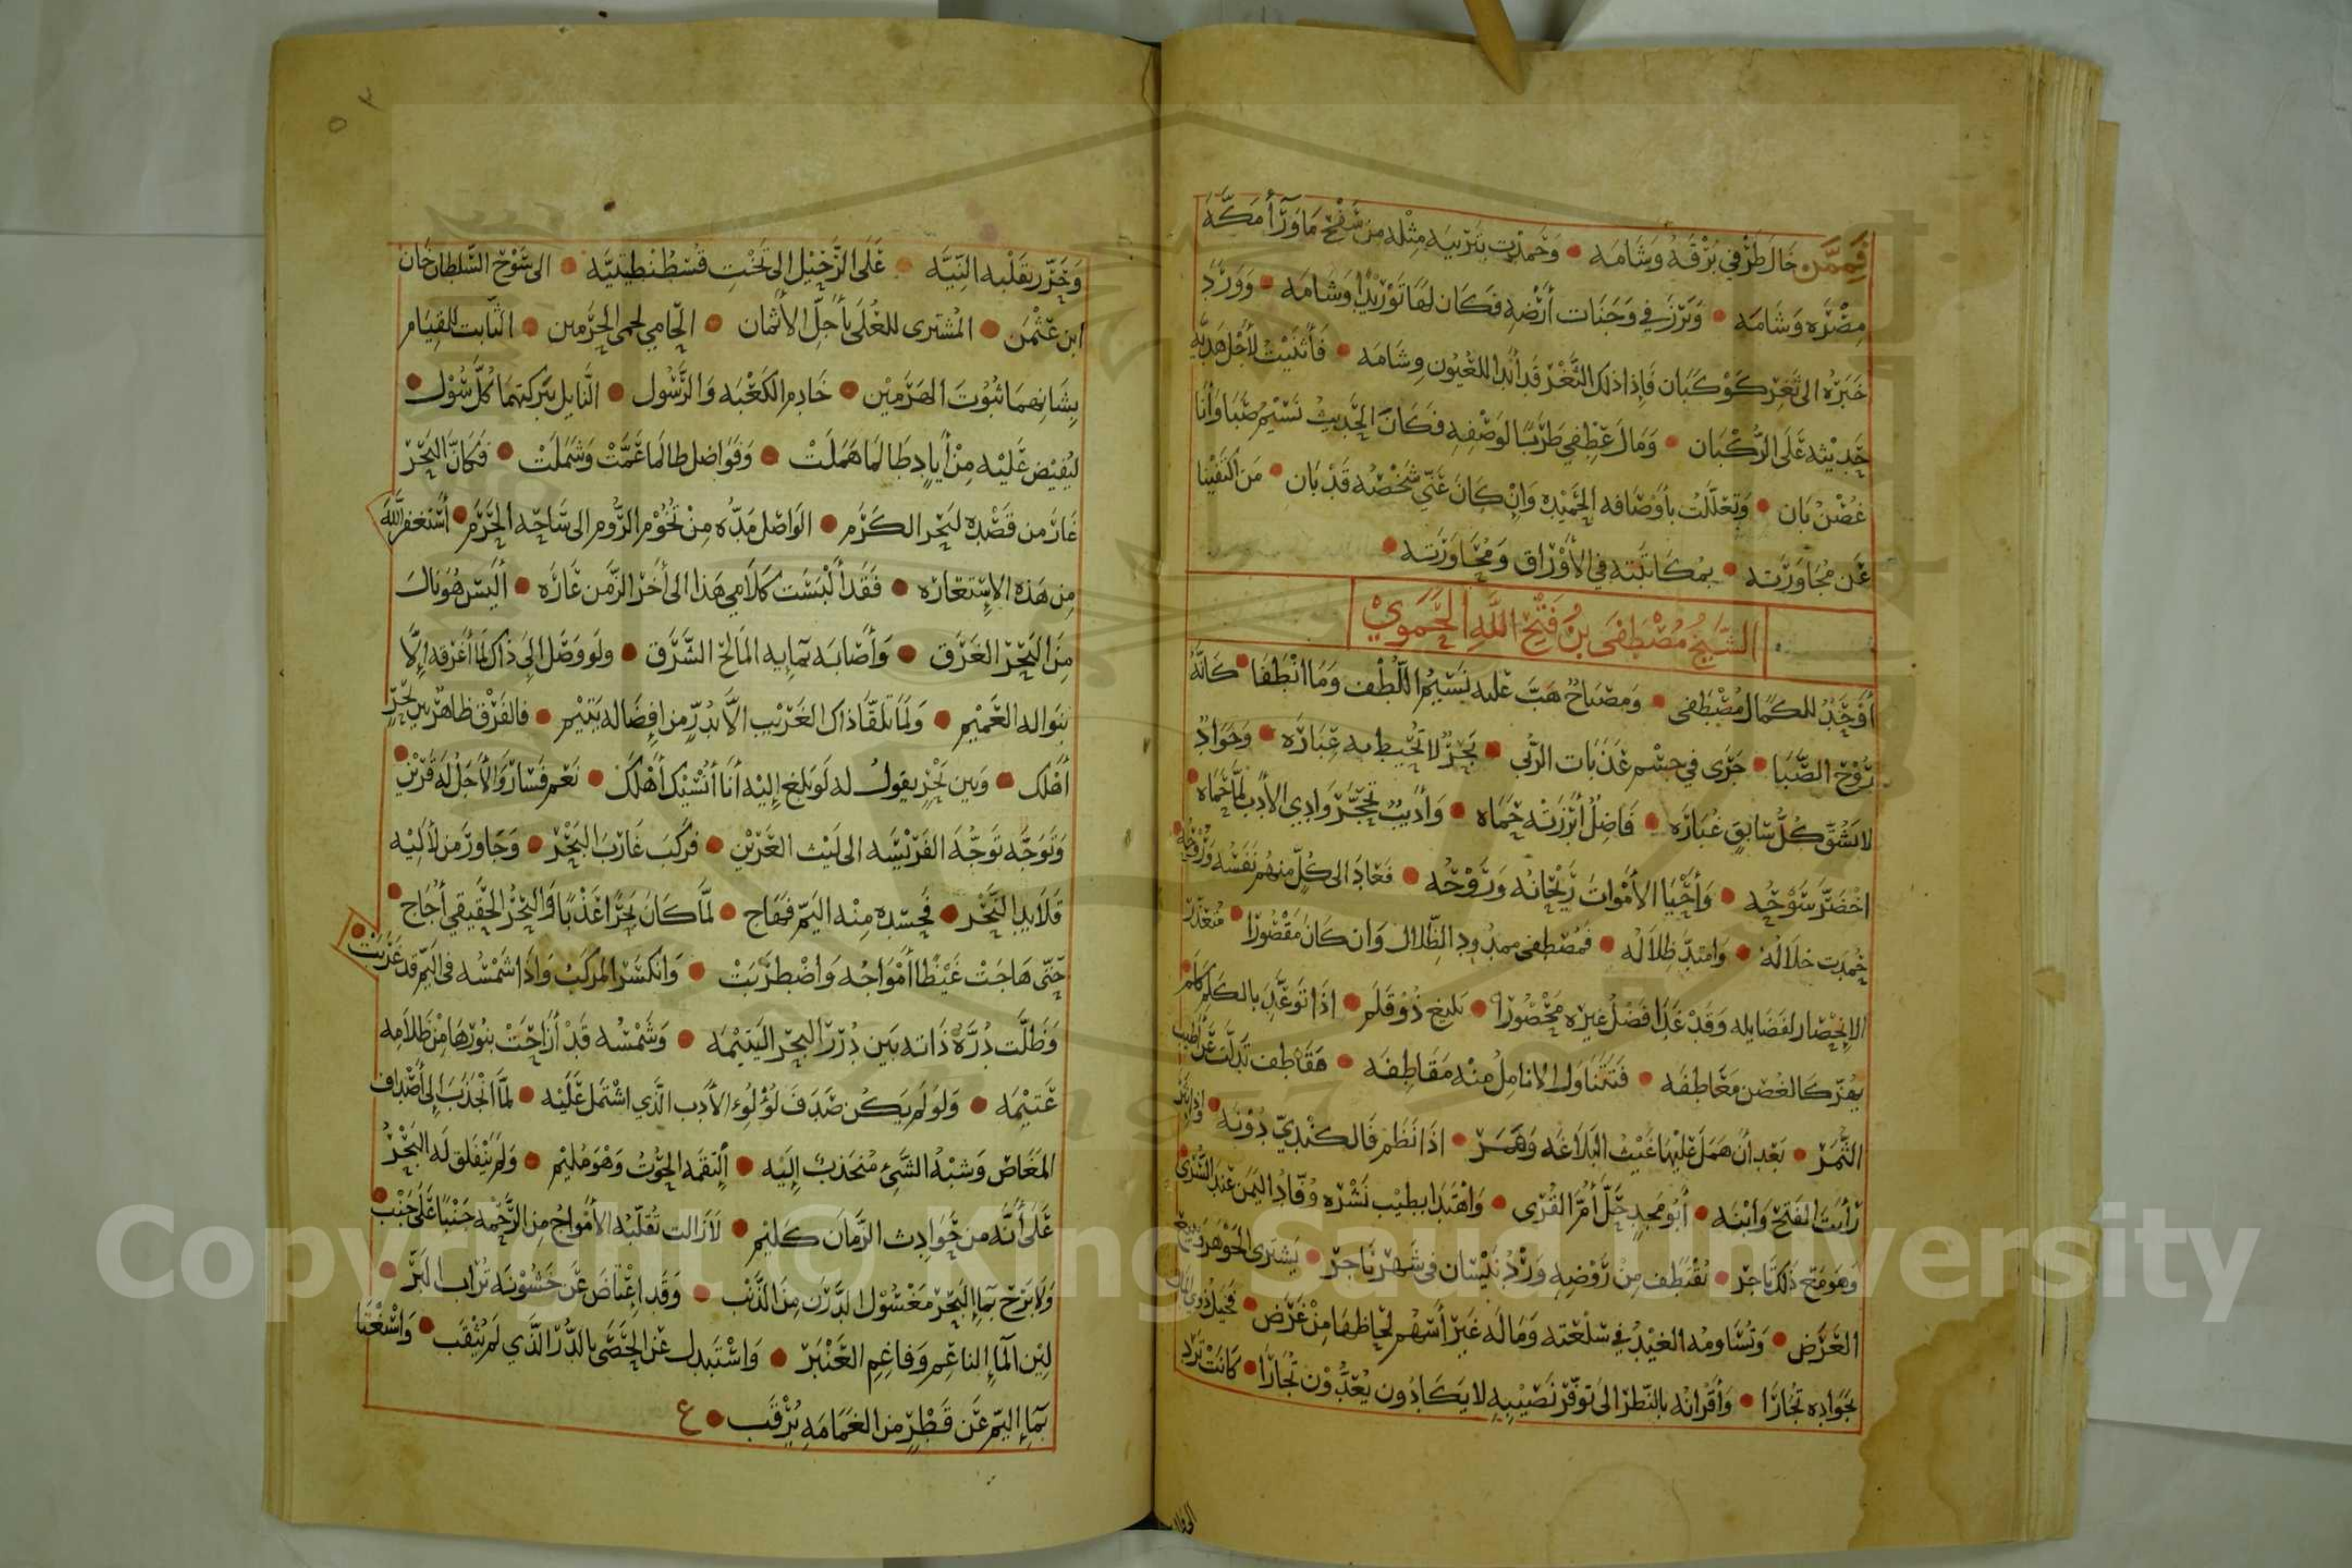 فَمِمَّن جَالَ طَرْفِي بُرْقَةُ وَشَامَه • وَحَمِدْت بِتَرْبِيَه مِثْلِه مِن سَفْحِ مَا وَرَآ أَمَكَّةَ
مِصْرِه وَشَامَه • وَبَرَزَ فِي وَجَنَات أَرْضِهِ فَكَان لَهَا تَوْرِيْدًا وَشَامَه • وَوَرَدَ
خَبَرُه الى ثَغْرِ كَوْكَبَان فَإِذَا ذلك الثَّغْر قَد أَبْدَا لِلعُيُون وِشَامَه • فَأَثْنَيْتُ لأَجْل هَدْيِهِ
حَدِيْثِه عَلَى الرُّكْبَان • وَمَالَ عِطْفِي طَرَبًا لِوَصْفِهِ فَكَانَ الحَدِيثُ نَسِيْمُ صَبَا وَأَنَا
غُصْنُ بَان • وَتَعَلَّلْتُ بِأَوْصَافِه الحَمِيْدِه وَإِنْ كَانَ عَنِّي شَخْصُه قَدْ بَان • مَن اكتَفَيْنَا
عَن مُجَاوَرَتِه • بِمُكَاتَبَتِه فِي الأَوْرَاق وَمُحَاوَرَتِه •
الشَّيْخُ مُصْطَفَى بنُ فَتْحِ اللّهِ الحَمَوِيّ
أَوْحَدٌ للكمال مُصْطَفى • وَمصْبَاحٌ هَبَّ عَليه نَسِيْمُ اللُّطْفِ وَمَا انْطَفَا • كَانَّهُ
رَوْحُ الصَّبَا • جَرَى فِي جِسْمِ عَذَبَات الرُّبَى • بَحْرٌ لا تُحِيْط بِه عِبَارَه • وَجَوَادٌ
لا يَشُقُّ كُلُّ سَابِقٍ غُبَارَه • فَاضِلٌ أَبْرَزَتْه حَمَاه • وَأَدِيبٌ تَحَجَّرَ وَادِي الأَدَب لَمَّا حَمَاه •
اخْضَرَّ سَوْحُه • وَأَحْيَا الأَمْوَاتَ رَيْحَانُه وَرَوْحُه • فَعَادَ الى كُلٍّ مِنهُم نَفَسُه وَرُوْحُه •
حُمِدَت خلَالُهُ • وَامْتَدَّ ظِلاَلُه • فَمُصْطفى ممدُودِ الظِّلال وَان كَان مَقْصُورًا • مُتَعَذِّرُ
الانْحِصَار لفَضَايِلِه وَقَدْ غَدَا فَضْلُ غَيْرِه مَحْصُورًا • بَلِيغ ذُوْ قَلَم • اذَا تَوَغَّلَ بالكلِم كَلَم •
يهْتَزّ كَالغُصْن مَعَاطِفَه • فَتَتَنَاول الانامِلُ مِنْه مَقَاطِفَه • مَقَاطِف تَدَلَّت عَن أَطْيَب
الثَّمَر • بَعْد أَن هَمَل عَلَيْهَا غَيْثُ البَلاَغَه وَهَمَر • اذَا نَظَم فَالكِنْدِيّ دُوْنَه •
رَأيتَ الفَتْحَ وَابْنَه • أَبُو مَجدٍ حَلَّ أُمَّ القُرَى • وَاهْتَدَا بطِيْب نَشْرِه وُفَّادُ اليَمَن عَنِد السُّرَى •
وَهوَ مَعَ ذَلِكَ تَاجِر • تُقْتَطِف مِنْ رَوْضِهِ وَرْدُ نَيْسَان فِي شَهْر نَاجِر • يَشْتَرى الجَوْهَر بِبَيْع
العَرَض • وَتُسَاوِمُه الغِيْدُ فِي سِلْعَتِه وَمَا لَه غَيْر أَسْهُم لِحَاظِهَا مِنْ غَرَض •
بَجَوَادِه تُجَارَا • وَأَقْرَانُه بِالنَّظَر الَى تَوَفُّرِ نَصِيْبِهِ لا يَكَادُون يُعَدُّوْن تُجَارَا • كَانَتْ تَرِد
وَحَرَّر بِقَلْبِه النِّيَّه • عَلَى الرَّحِيْل الى تَخْتِ قُسْطُنْطِيْنِيَّه • الى سَوْح السُّلطان خَان
ابن عُثْمَن • المُشْتَرِى للعُلَى بأَجَلِّ الأَثْمَان • الحَامِي لحِمَى الحَرَمين • الثَّابت للقِيَام
بِشَانِهِمَا ثُبُوتَ الهَرَمَيْن • خَادِم الكَعْبَه وَالرَّسُول • النَّايِل بَبَركتِهمَا كُلَّ سُوْل •
ليُفِيْض عَلَيْه مِنْ أَيَادٍ طَالمَا هَمَلَتْ • وَفَوَاضِل طالمَا عَمَّتْ وَشَمَلَتْ • فَكَانَّ البَحْرَ
غَارَ من قَصْدِهِ لبَحْر الكَرَم • الوَاصِل مَدُّه مِنْ تُخُوْم الرُّوم الى سَاحَه الحَرَم • أَسْتَغفِرُ اللّهَ
مِن هَذِه الاسْتِعَارَه • فَقَد أَلْبَسَت كَلَامِي هَذا الى أَخَر الزَّمَن عَارَه • أَلَيْسَ هُوَ نَالَ
مِنَ البَحْرِ الغَرَق • وَأَصَابَه بمَايِه المَالِح الشَّرَق • ولَو وَصَل الى ذَاك لمَا أَغْرَقَه الَّا
بِنَوَالِه العَمِيْم • وَلَمَا تَلَقَّا ذَاك الغَرِيْب الَّا بِدُرٍّ مِن إفضَالِه يَتِيْم • فالفَرْق ظاهِرٌ بين بَحْرٍ
أَهْلَك • وَبين بَحْرٍ يقول له لَو بَلغ إلَيْه أَنَا أُنْسِيْك أَهْلَك • نَعَم فَسَارَ وَالأَجَلُ لَه قَرْيْن •
وَتَوَجَّه تَوَجُّهَ الفَرِيْسَه الى لَيْث العَرِيْن • فَرَكبَ غَارِبَ البَحْر • وَجَاوَرَ مِن لآلِيْه
قَلَايِدَ النَّحْر • فَحَسَدَه مِنْه اليَمّ فَهَاج • لمَّا كَانَ بَحْرًا عَذْبًا وَالبَحْرُ الحَقِيقي أُجَاج •
حَتَّى هَاجَتْ غَيْظًا أَمْوَاجُه وَاضْطرَبَتْ • وَانكَسَر المَركَبُ وَاذَا شَمْسُه فى اليَمّ قد غَرُبَتْ •
وَظَلَّت دُرَّةُ ذَاتِه بَين دُرَر البَحْر اليَتِيْمَه • وَشَمْسُه قَدْ أَزَاحَتْ بنُوْرِهَا مِنْ ظَلاَمِه
عَتِيْمَه • وَلَو لَم يَكُن صَدَفَ لُؤْلُوء الأَدب الَّذِي اشْتَمَل عَلَيْه • لمَّا انْجَذَبَ إلى أَصْدَاف
المَغَاص وَشِبْهُ الشَّيْءِ مُنجَذبٌ إلَيْه • الْتَقَمَه الحُوتُ وَهْوَ مُلِيْم • وَلَم يَنْفَلق لَه البَحْرُ
عَلَى أَنَّه مِن حَوَادِث الزَّمَان كَلِيْم • لاَزَالت تُقَلِّبُه الأَمْوَاجُ مِن الرَّحْمَه جَنْبًا عَلَى جَنْب •
وَلَا بَرَحَ بمَاءِ البَحْرِ مَغْسُوْل الدَّرَن مِنَ الذَّنْب • وَقَد اعْتَاضَ عَن خُشُوْنَة تُرَاب البَرّ •
لِيْن المَآءِ النَاعِم وَفَاغِمِ العَنْبَر • وَاسْتَبدل عَن الحَصَى بالدُّرّ الَّذِي لَم يُثْقَب • وَاسْتَغْنَا
بمَاءِ اليَمّ عَن قَطْرٍ مِن الغَمَامَهِ يُرْقَب • ع